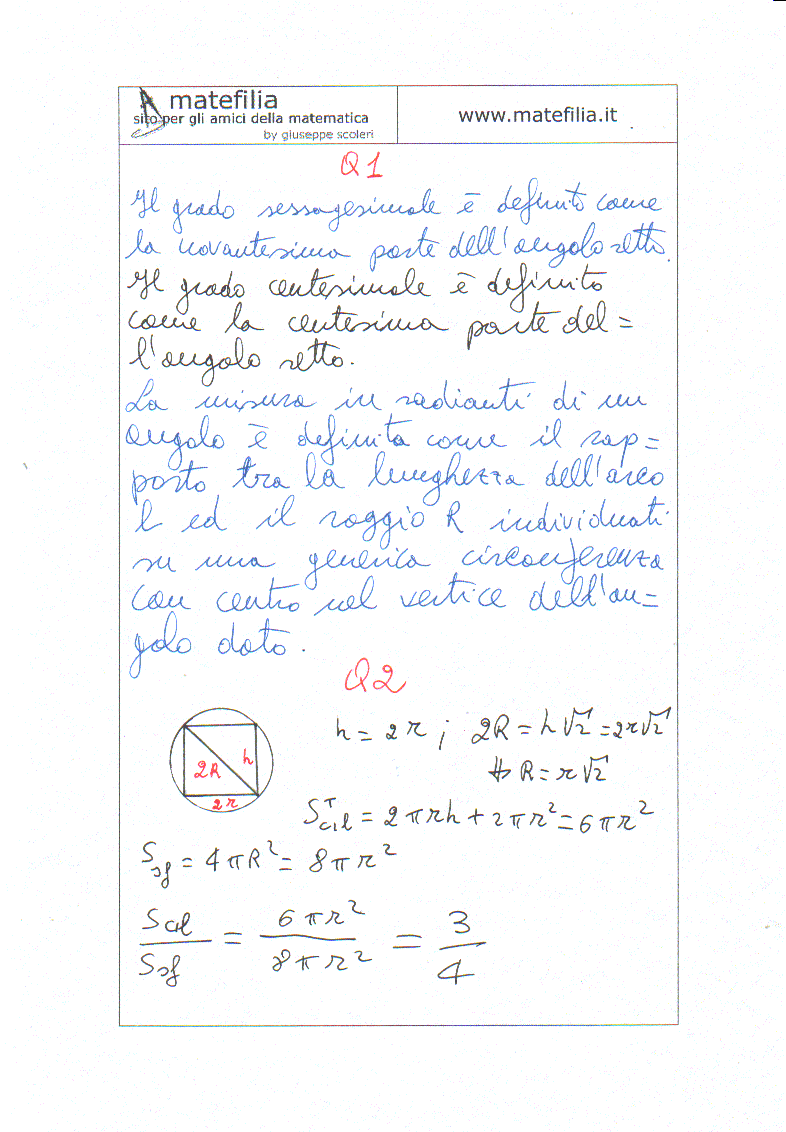 matefilia
sito per gli amici della matematica
by giuseppe scoleri
www.matefilia.it
Q1
Il grado sessagesimale è definito come
la novantesima parte dell'angolo retto.
Il grado centesimale è definito
come la centesima parte del=
l'angolo retto.
La misura in radianti di un
angolo è definita come il rap=
porto tra la lunghezza dell'arco
l ed il raggio R individuati
su una generica circonferenza
con centro nel vertice dell'an=
golo dato.
Q2
h = 2r ; 2R = h√2 = 2r√2
⇒ R = r√2
2R
h
2r
S^T_cil = 2πrh + 2πr² = 6πr²
S_sf = 4πR² = 8πr²
S_cil / S_sf = 6πr² / 8πr² = 3/4